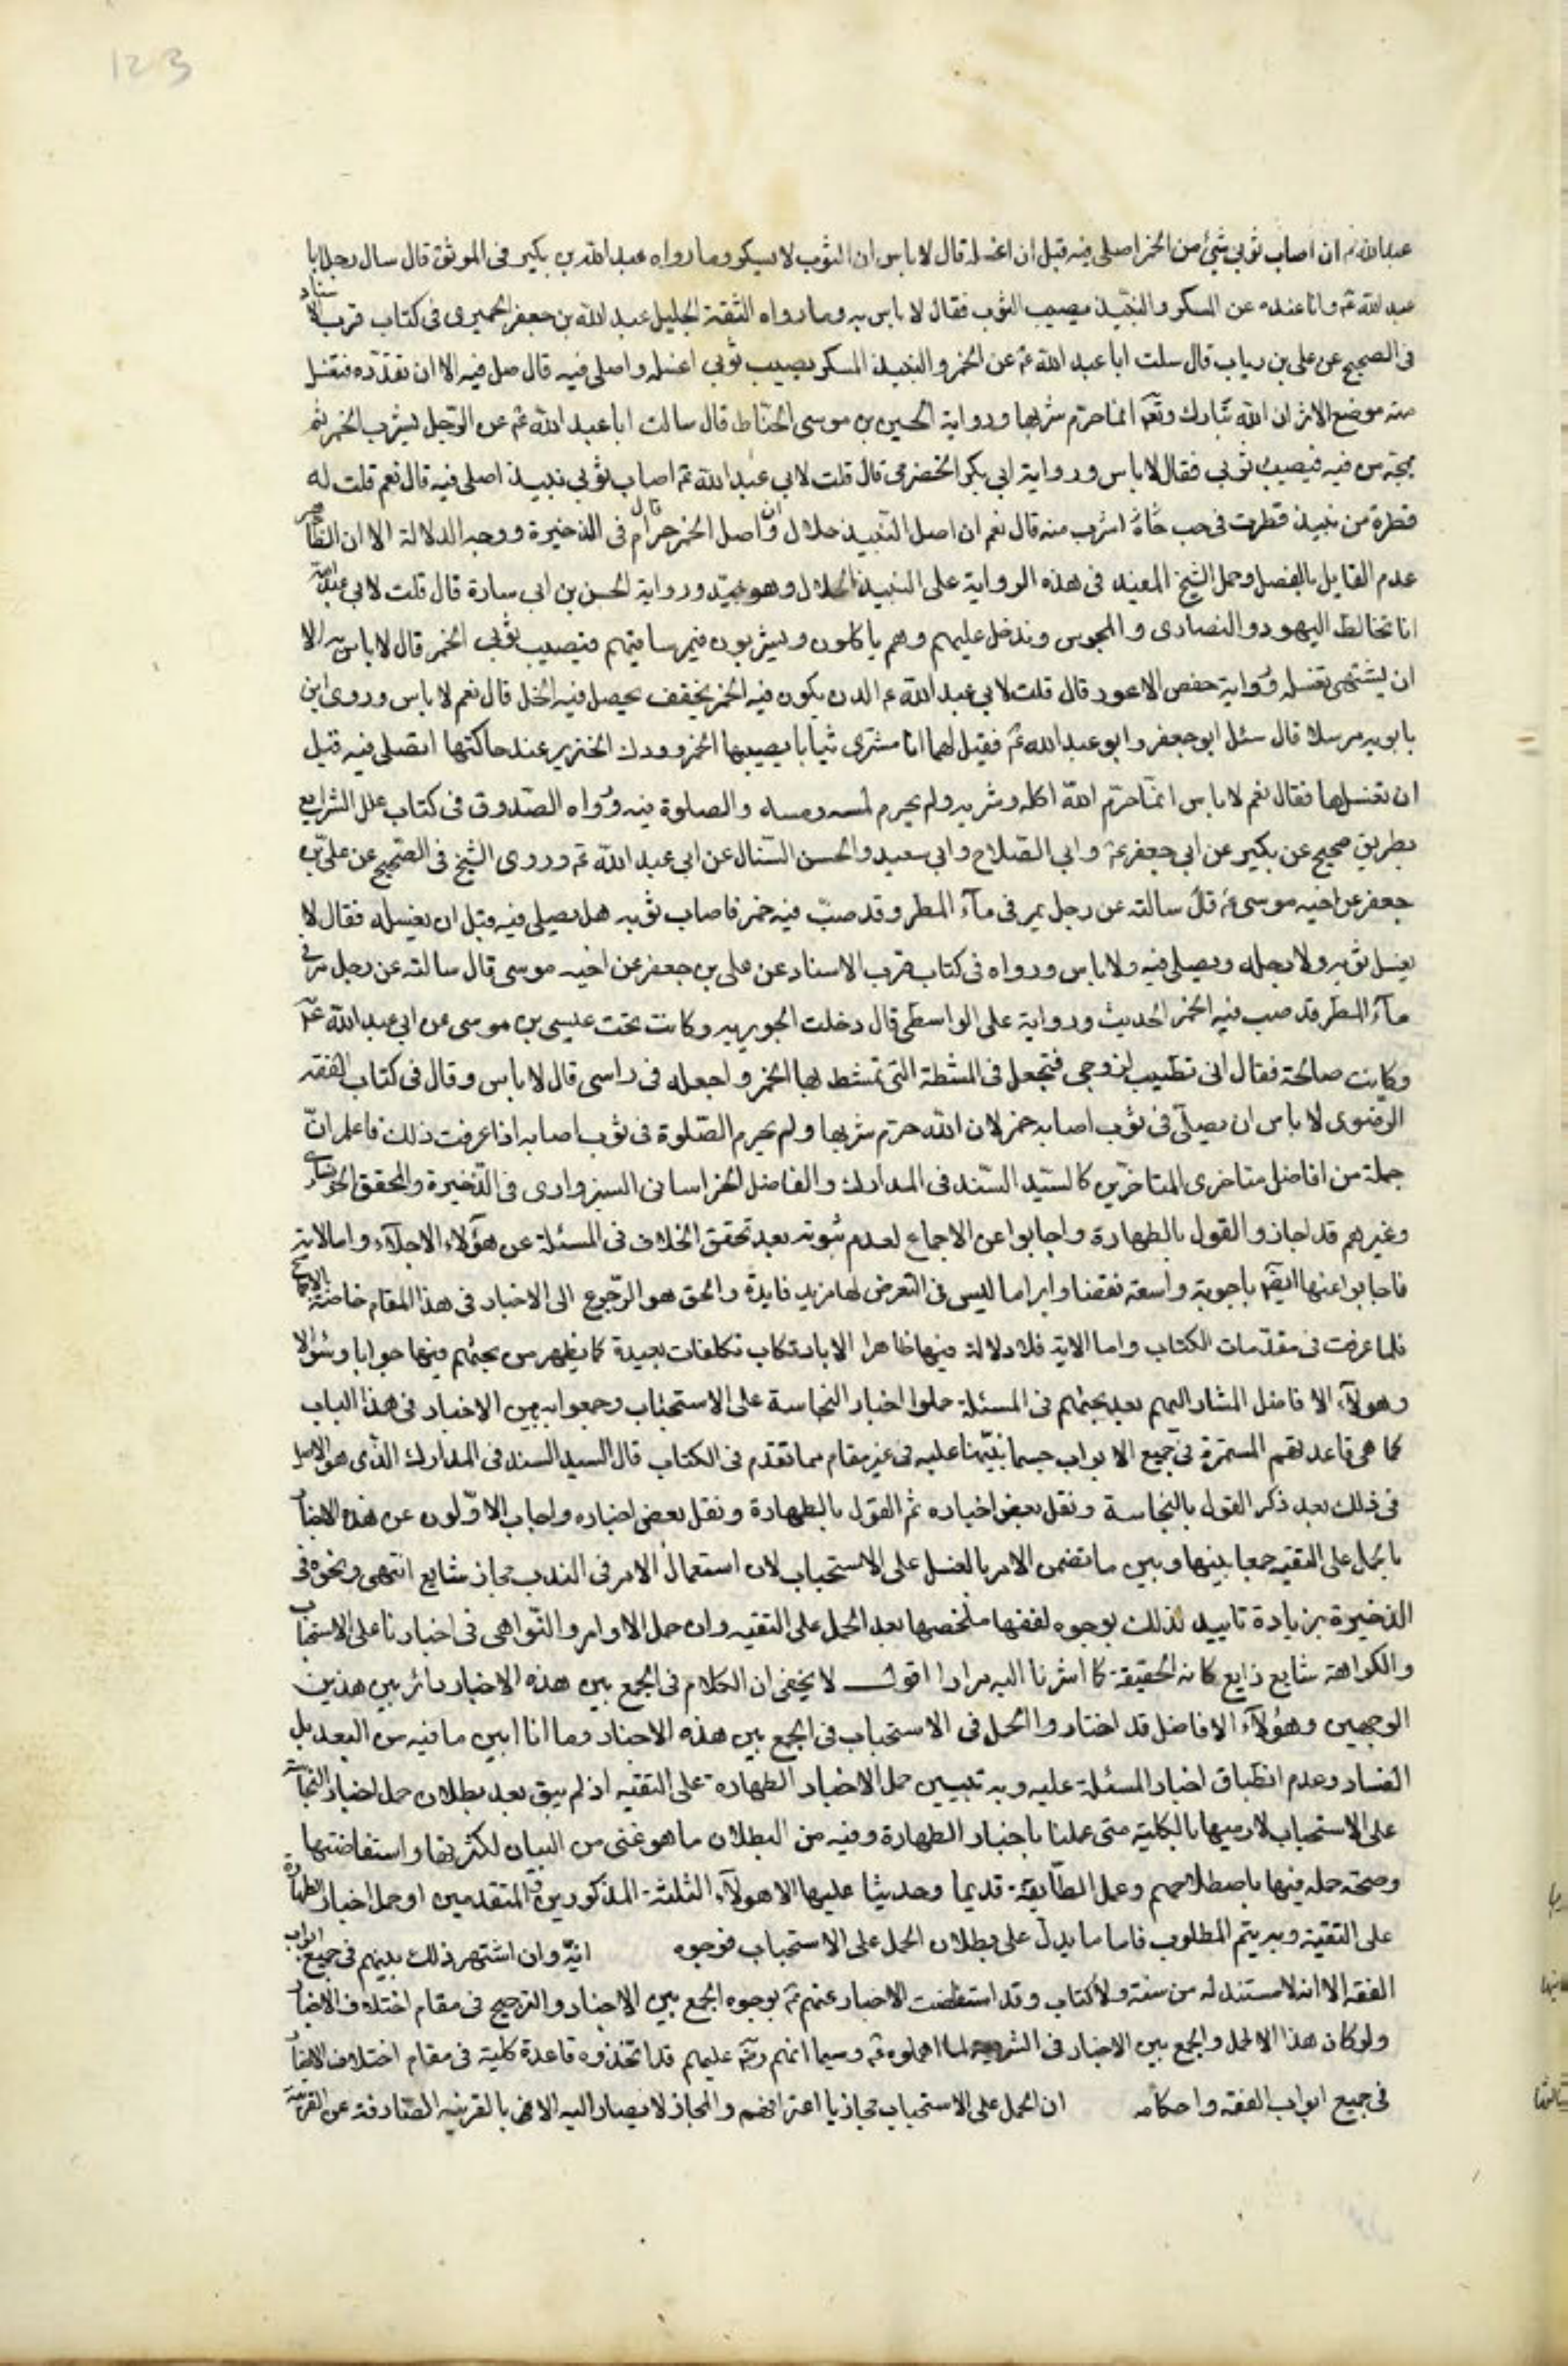 123
عبدالله ع ان اصاب ثوبي شيئ من الخمر اصلى فيه قبل ان اغسله قال لا باس ان الثوب لا يسكر وما رواه عبد الله بن بكير فى الموثق قال سال رجل ابا
عبد الله ع وانا عنده عن المسكر والنبيذ يصيب الثوب فقال لا باس به وما رواه الثقة الجليل عبد الله بن جعفر الحميرى فى كتاب قرب الاسناد
فى الصحيح عن على بن رياب قال سلت ابا عبد الله ع عن الخمر والنبيذ المسكر يصيب ثوبي اغسله واصلى فيه قال صل فيه الا ان تقذره فتغسل
منه موضع الاثر ان الله تبارك وتعم انما حرم شربها ورواية الحسين بن موسى الحناط قال سالت ابا عبد الله ع عن الرجل يشرب الخمر ثم
يمجه من فيه فيصيب ثوبي فقال لا باس ورواية ابى بكر الحضرمى قال قلت لابي عبد الله ع اصاب ثوبي نبيذ اصلى فيه قال نعم قلت له
قطرة من نبيذ قطرت فى حب اشرب منه قال نعم ان اصل النبيذ حلال وان اصل الخمر حرام قال فى الذخيرة ووجه الدلالة الا ان الظاهر
عدم القايل بالفصل وحمل الشيخ المفيد فى هذه الرواية على النبيذ الحلال وهو جيد ورواية الحسن بن ابى سارة قال قلت لابى عبد الله
انا نخالط اليهود والنصارى والمجوس وندخل عليهم وهم ياكلون ويشربون فيمر ساقيهم فيصيب ثوبى الخمر قال لا باس به الا
ان يشتهى تغسله ورواية حفص الاعور قال قلت لابي عبد الله ع الدن يكون فيه الخمر يجفف يحصل فيه الخل قال نعم لا باس وروى ابن
بابويه مرسلا قال سئل ابو جعفر وابو عبد الله ع فقيل لهما انا نشترى ثيابا يصيبها الخمر وودك الخنزير عند حاكتها انصلى فيه قبل
ان نغسلها فقال نعم لا باس انما حرم الله اكله وشربه ولم يحرم لمسه ومسه والصلوة فيه ورواه الصدوق فى كتاب علل الشرايع
بطريق صحيح عن بكير عن ابى جعفر ع وابى الصلاح وابى سعيد والحسن النبال عن ابى عبد الله ع وروى الشيخ فى الصحيح عن على بن
جعفر عن اخيه موسى ع قال سالته عن رجل يمر فى مآء المطر وقد صب فيه خمر فاصاب ثوبه هل يصلى فيه قبل ان يغسله فقال لا
يغسل ثوبه ولا رجله ويصلى فيه ولا باس ورواه فى كتاب قرب الاسناد عن على بن جعفر عن اخيه موسى قال سالته عن رجل مر فى
مآء المطر قد صب فيه الخمر الحديث ورواية على الواسطى قال دخلت الجويريه وكانت تحت عيسى بن موسى عن ابى عبد الله ع
وكانت صالحة فقال انى تطيب لزوجى فتجعل فى المشطة التى تمشط بها الخمر واجعله فى راسى قال لا باس وقال فى كتاب الفقه
الرضوى لا باس ان يصلى فى ثوب اصابه خمر لان الله حرم شربها ولم يحرم الصلوة فى ثوب اصابه اذا عرفت ذلك فاعلم ان
جملة من افاضل متاخرى المتاخرين كالسيد السند فى المدارك والفاضل الخراسانى السبزوارى فى الذخيرة والمحقق الخونسارى
وغيرهم قد اجازوا القول بالطهارة واجابوا عن الاجماع لعدم ثبوته بعد تحقق الخلاف فى المسئلة عن هؤلاء الاجلاء واما الاية
فاجابوا عنها ايضا باجوبة واسعة نقضا وابراما ليس فى التعرض لها مزيد فايدة والحق هو الرجوع الى الاخبار فى هذا المقام خاصة
فلما عرفت فى مقدمات الكتاب واما الاية فلا دلالة فيها ظاهرا الا بارتكاب تكلفات بعيدة كما يظهر من بحثهم فيها جوابا وسؤالا
وهولآء الافاضل المشار اليهم بعد بحثهم فى المسئلة حملوا اخبار النجاسة على الاستحباب وجمعوا به بين الاخبار فى هذا الباب
كما هى قاعدتهم المستمرة فى جميع الابواب حسبما نبهنا عليه فى غير مقام مما تقدم فى الكتاب قال السيد السند فى المدارك الذى هو الاصل
فى ذلك بعد ذكر القول بالنجاسة ونقل بعض اخباره ثم القول بالطهارة ونقل بعض اخباره واجاب الاولون عن هذه الاخبار
بالحمل على التقيه جمعا بينها وبين ما تضمن الامر بالغسل على الاستحباب لان استعمال الامر فى الندب مجاز شايع انتهى ونحوه فى
الذخيرة بزيادة تاييد لذلك بوجوه لفقها ملخصها بعد الحمل على التقيه وان حمل الاوامر والنواهى فى اخبارنا على الاستحباب
والكراهة شايع ذايع كانه الحقيقة كما اشرنا اليه مرارا اقول لا يخفى ان الكلام فى الجمع بين هذه الاخبار دائر بين هذين
الوجهين وهؤلآء الافاضل قد اختاروا الحمل فى الاستحباب فى الجمع بين هذه الاخبار وما انا ابين ما فيه من البعد بل
الفساد وعدم انطباق اخبار المسئلة عليه وبه تبيين حمل الاخبار الطهارة على التقيه اذ لم يبق بعد بطلان حمل اخبار النجاسة
على الاستحباب لا رميها بالكلية متى عملنا باخبار الطهارة وفيه من البطلان ما هو غنى من البيان لكثرتها واستفاضتها
وصحة جله فيها باصطلاحهم وعمل الطايفة قديما وحديثا عليها الا هولآء الثلثة المذكورين المتقدمين او حمل اخبار الطهارة
على التقية وبه يتم المطلوب فاما ما يدل على بطلان الحمل على الاستحباب فوجوه انه وان اشتهر ذلك بينهم فى جميع ابواب
الفقه الا انه لا مستند له من سنة ولا كتاب وقد استفاضت الاخبار عنهم ع بوجوه الجمع بين الاخبار والترجيح فى مقام اختلاف الاخبار
ولو كان هذا الا لحمل والجمع بين الاخبار فى الشريعة لما اهملوه ع وسيما انهم رض عليهم قد اتخذوه قاعدة كلية فى مقام اختلاف الاخبار
فى جميع ابواب الفقه واحكامه ان الحمل على الاستحباب مجاز باعترافهم والمجاز لا يصار اليه الا مع بالقرينه الصارفة عن القرينة